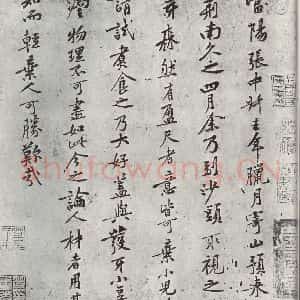 當陽張中叔去年臘月寄山預來
荊南久之四月余乃到沙頭取視之
芽森然有盈尺者意皆可棄小兒
請試煮食之乃大好蓋與發牙小豆
物理不可盡如此今之論人材者用其
知而輕棄人可勝歎哉
shufawang.CN